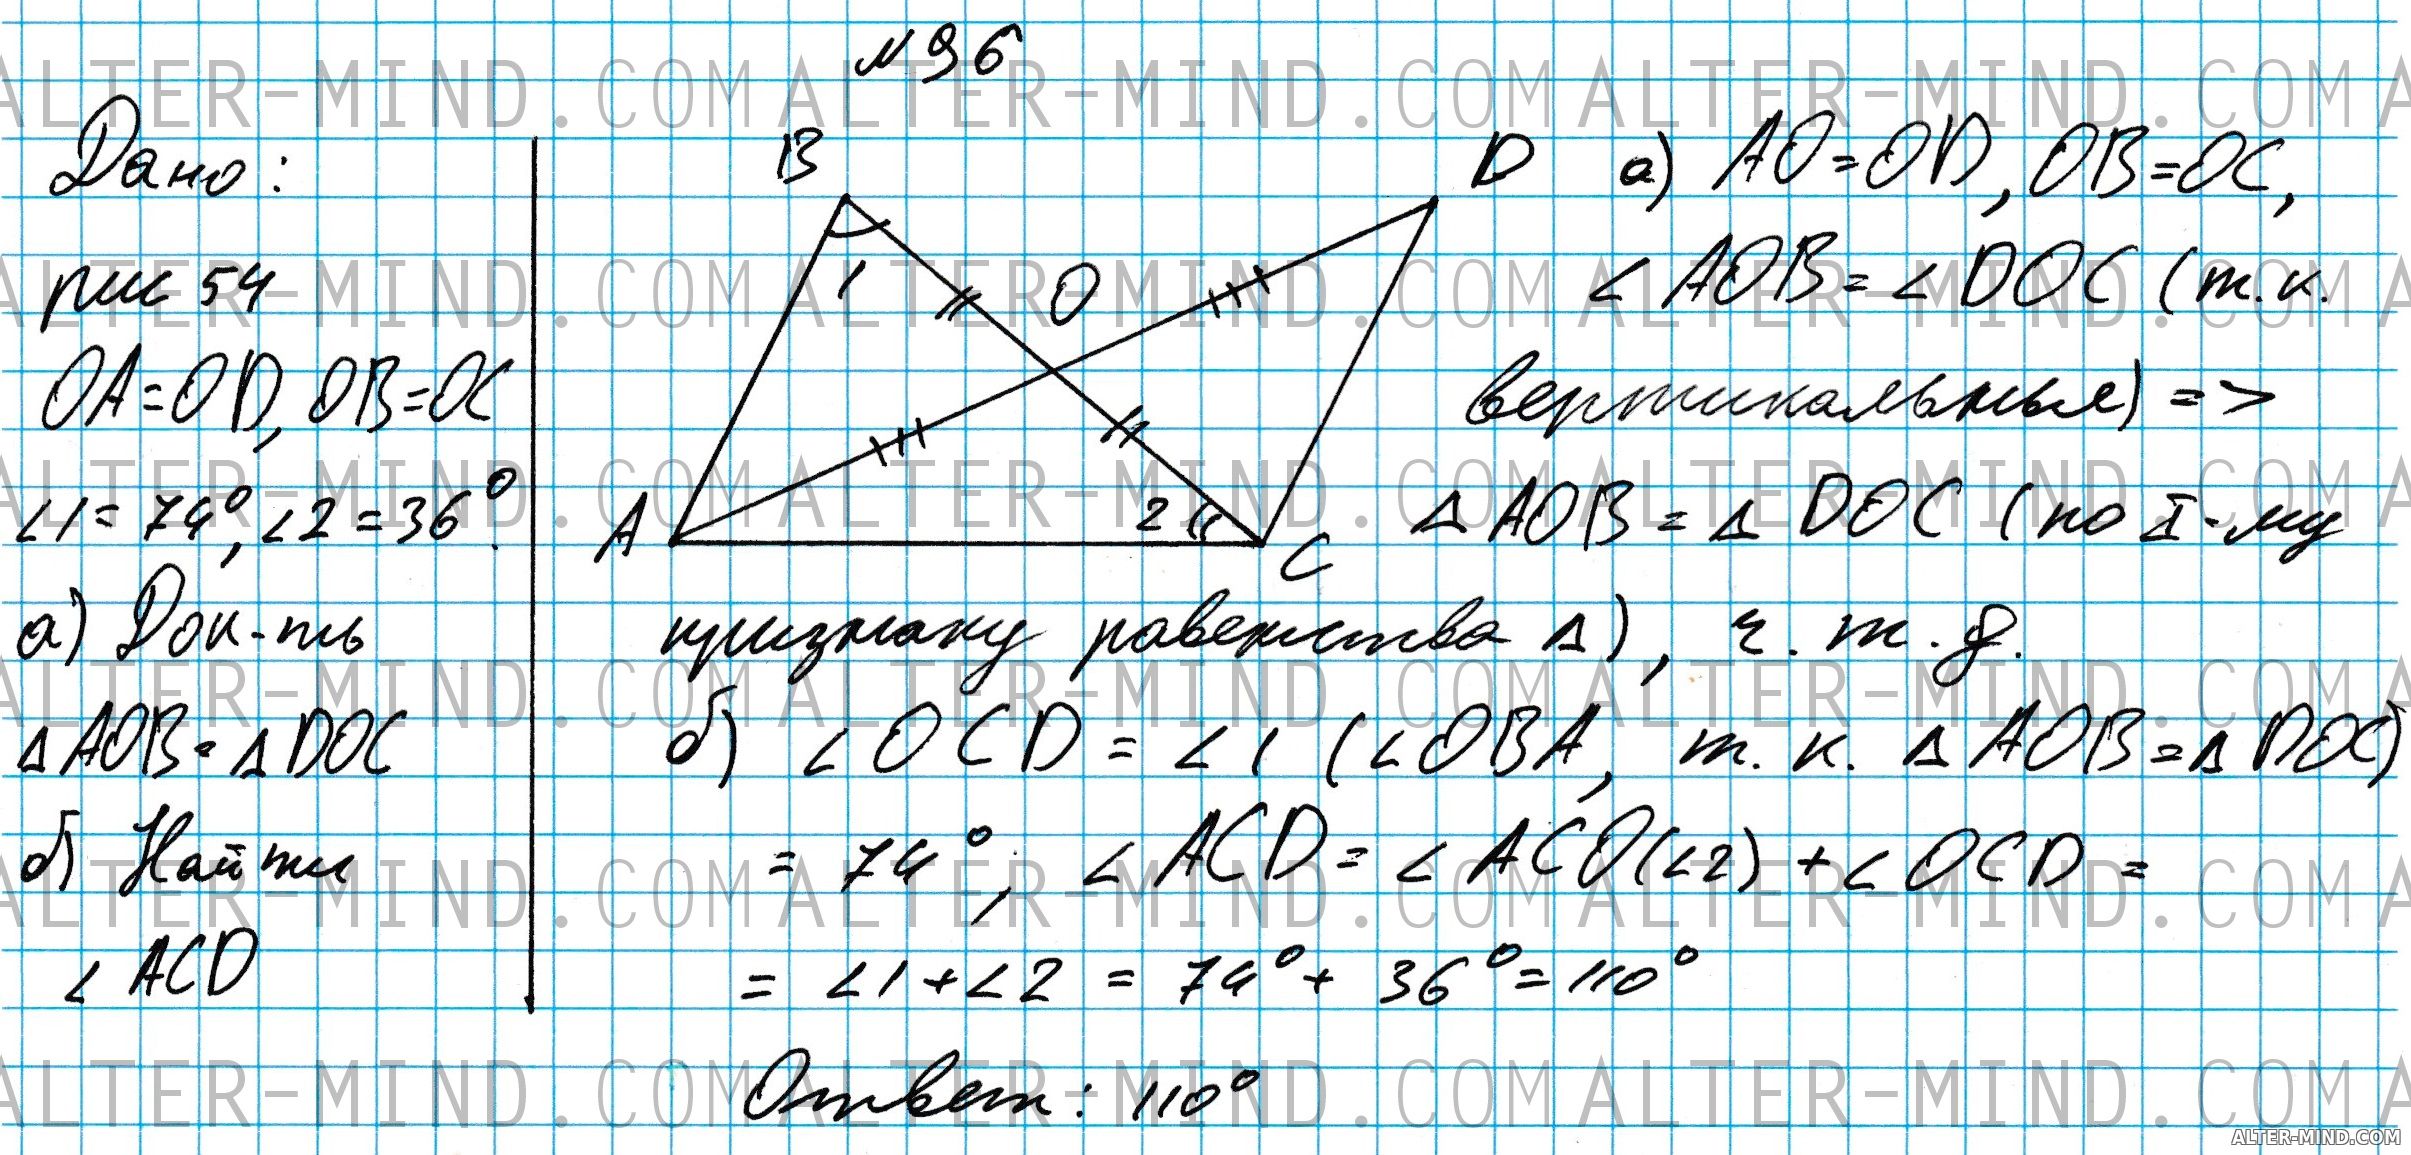 №96
Дано:
рис 54
OA=OD, OB=OC
∠1=74°, ∠2=36°.
а) Док-ть
△AOB=△DOC
б) Найти
∠ACD
B
D
1
O
A
2
C
а) AO=OD, OB=OC,
∠AOB=∠DOC (т.к.
вертикальные) =>
△AOB=△DOC (по I-му
признаку равенства △), ч.т.д.
б) ∠OCD=∠1 (∠OBA, т.к. △AOB=△DOC)
=74°, ∠ACD=∠ACO(∠2)+∠OCD=
=∠1+∠2=74°+36°=110°
Ответ: 110°
ALTER-MIND.COM